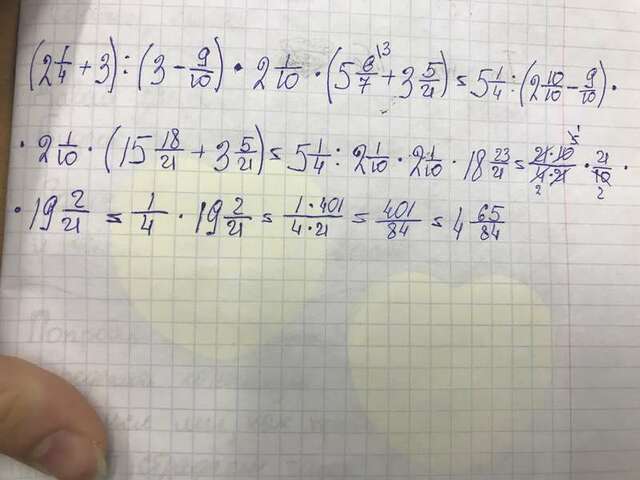 (2 1/4 + 3) : (3 - 9/10) • 2 1/10 • (5 6/7 \3 + 3 5/21) = 5 1/4 : (2 10/10 - 9/10) •
• 2 1/10 • (15 18/21 + 3 5/21) = 5 1/4 : 2 1/10 • 2 1/10 • 18 23/21 = 21•10/4•21 • 21/10 •
• 19 2/21 = 1/4 • 19 2/21 = 1•401/4•21 = 401/84 = 4 65/84